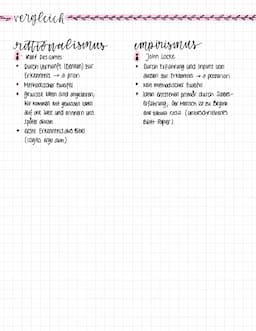 vergleich
rationalismus
René Descartes
Durch Vernunft (Denken) zur
Erkenntnis → a priori
Methodischer Zweifel
gewisse Ideen sind angeboren,
wir kommen mit gewissen Ideen
auf die Welt und erinnern uns
später daran
echte Erkenntnis aus
(cogito, ergo sum)
empirismus
John Locke
Durch Erfahrung und Input von
außen zur Erkenntnis → a posteriori
Kein methodischer Zweifel
Ideen entstehen primär durch Sinnes-
Erfahrung, der Mensch ist zu Beginn
eine tabula rasa (unbeschriebenes
Blatt Papier).